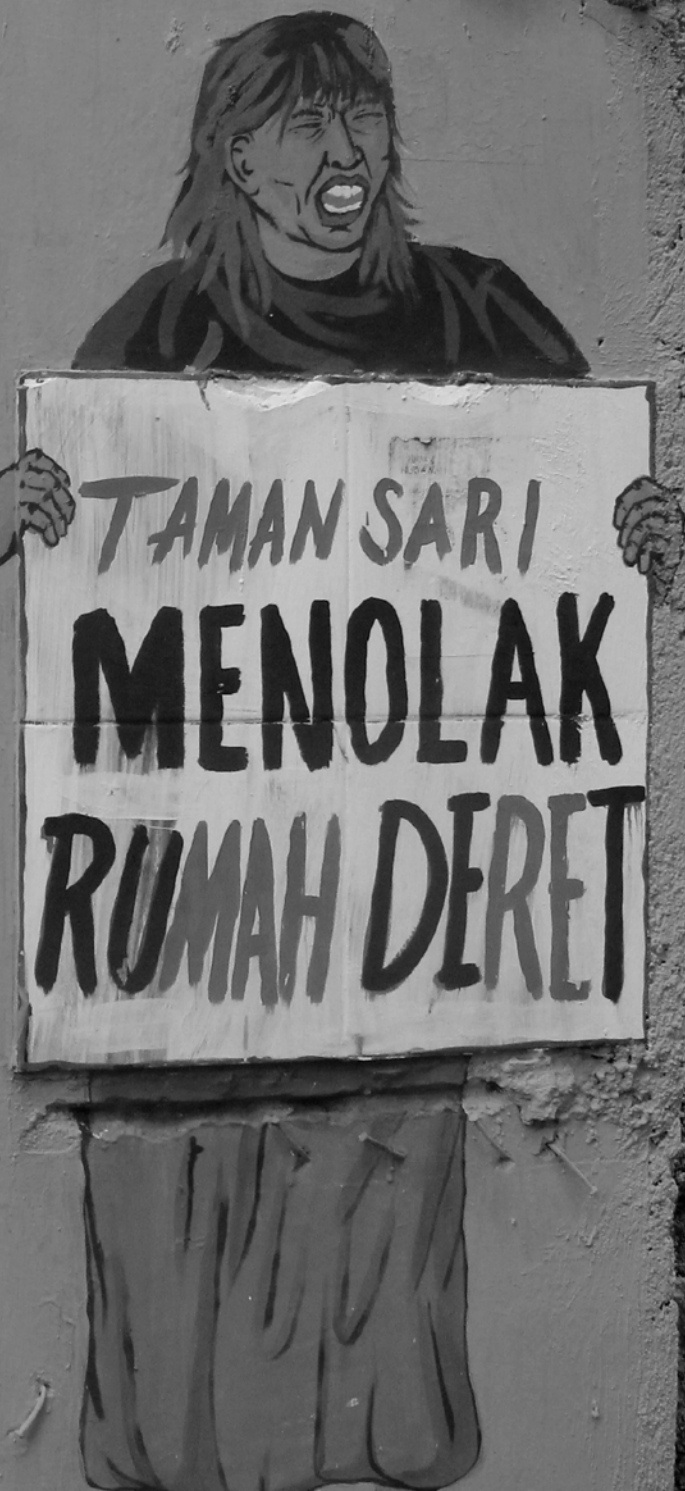 TAMAN SARI
MENOLAK
RUMAH DERET